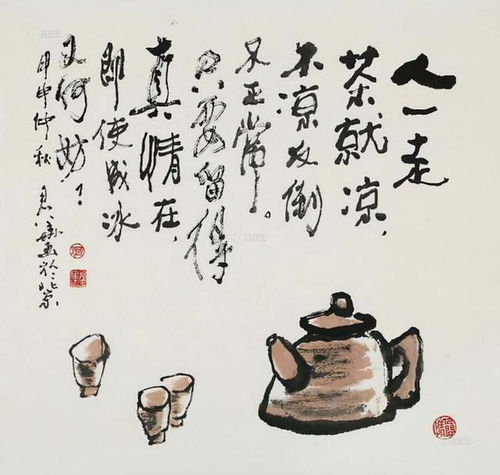 人一走
茶就凉，
不凉反倒
不正常。
只要留得
真情在，
即使成冰
又何妨？
甲申仲秋